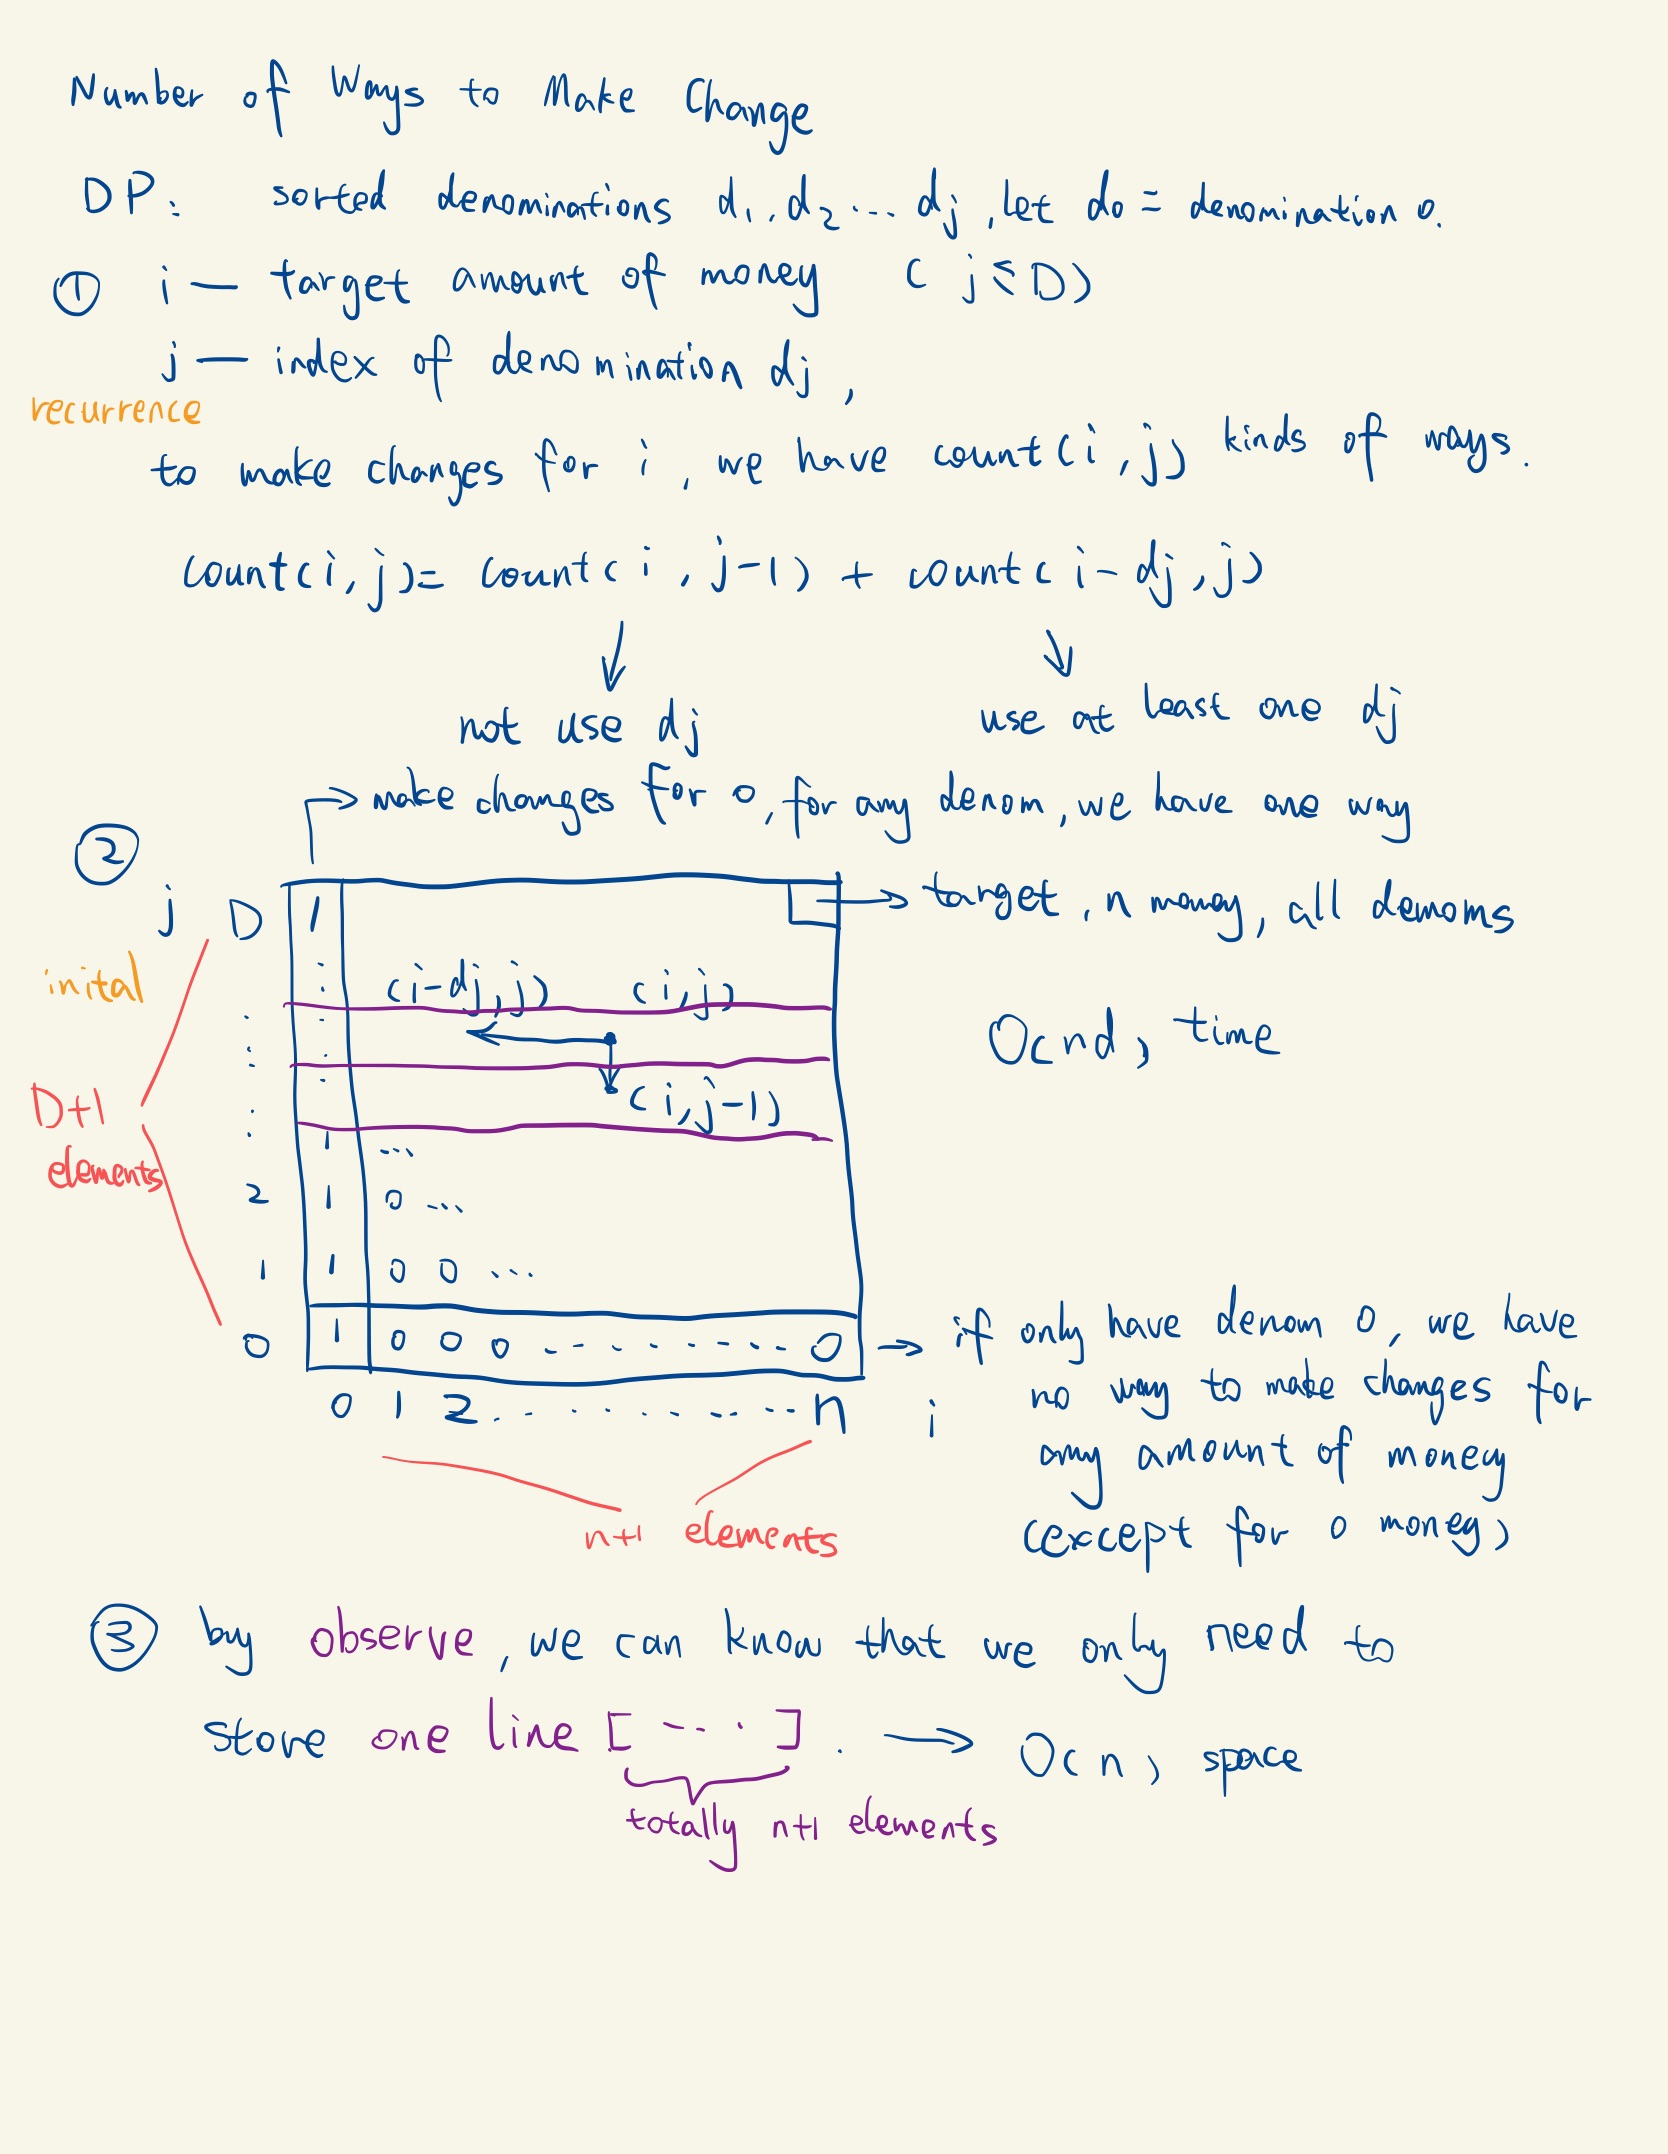 Number of Ways to Make Change
DP: sorted denominations d1, d2 ... dj, let d0 = denomination 0.
① i — target amount of money (j ≤ D)
j — index of denomination dj,
recurrence
to make changes for i, we have count(i, j) kinds of ways.
count(i, j) = count(i, j-1) + count(i-dj, j)
not use dj use at least one dj
make changes for 0, for any denom, we have one way
②
j D 1 target, n money, all denoms
inital
(i-dj, j) (i, j)
O(nd) time
D+1 (i, j-1)
elements
1 ...
2 1 0 ...
1 1 0 0 ...
0 1 0 0 0 ... 0 → if only have denom 0, we have
0 1 2 ... n i no way to make changes for
any amount of money
n+1 elements (except for 0 money)
③ by observe, we can know that we only need to
store one line [ ... ]. → O(n) space
totally n+1 elements